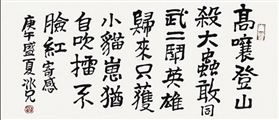 高嚷登山
殺大蟲敢同
武二鬪英雄
歸來只獲
小貓崽猶
自吹擂不
臉紅寄感
庚午盛夏冰兄